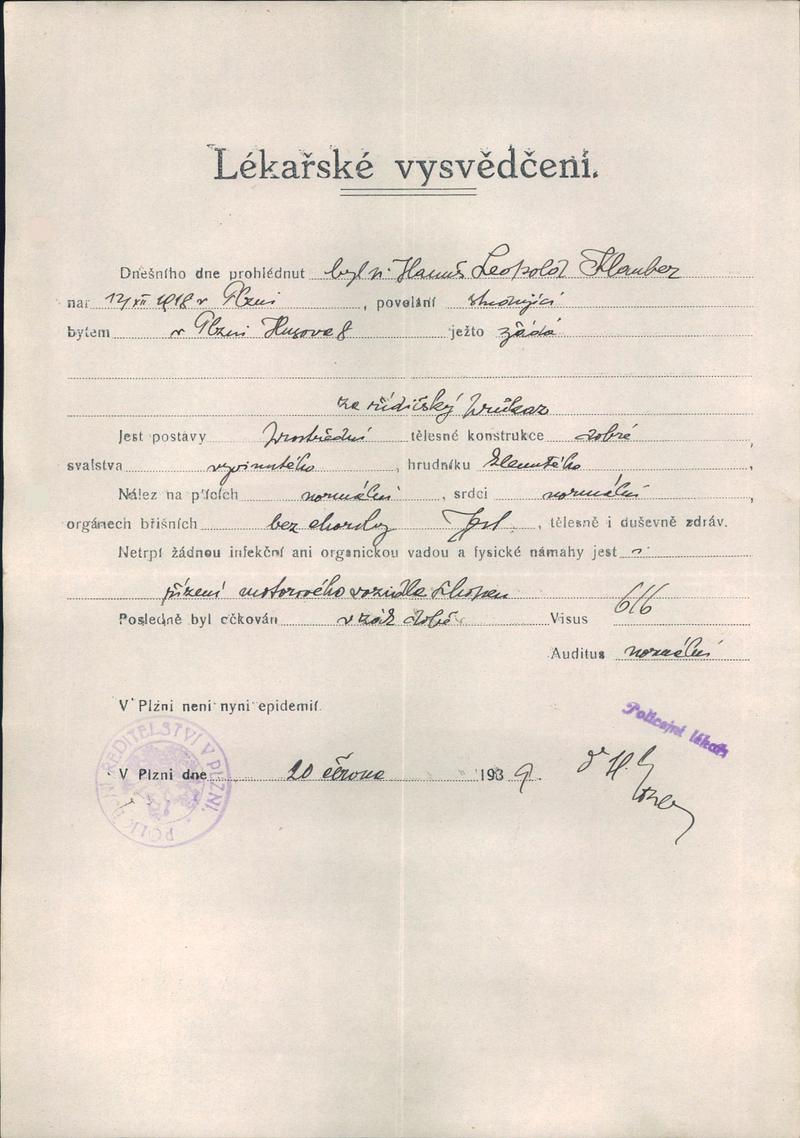 Lékařské vysvědčení.
Dnešního dne prohlédnut byl p. Hanuš Leopold Klauber
nar. 12 XII 1918 v Plzni, povolání studující
bytem v Plzni Husova 8 ježto žádá
za řidičský průkaz
Jest postavy prostřední tělesné konstrukce dobré,
svalstva vyvinutého, hrudníku klenutého,
Nález na plících normální, srdci normální,
orgánech břišních bez choroby Jest, tělesně i duševně zdráv.
Netrpí žádnou infekční ani organickou vadou a fysické námahy jest
řízení motorového vozidla schopen
Posledně byl očkován Visus 6/6
Auditus normální
V Plzni není nyní epidemií.
Policejní lékař
V Plzni dne 20 června 1939.
POLIC ŘEDITELSTVÍ V PLZNI.
Dr H.